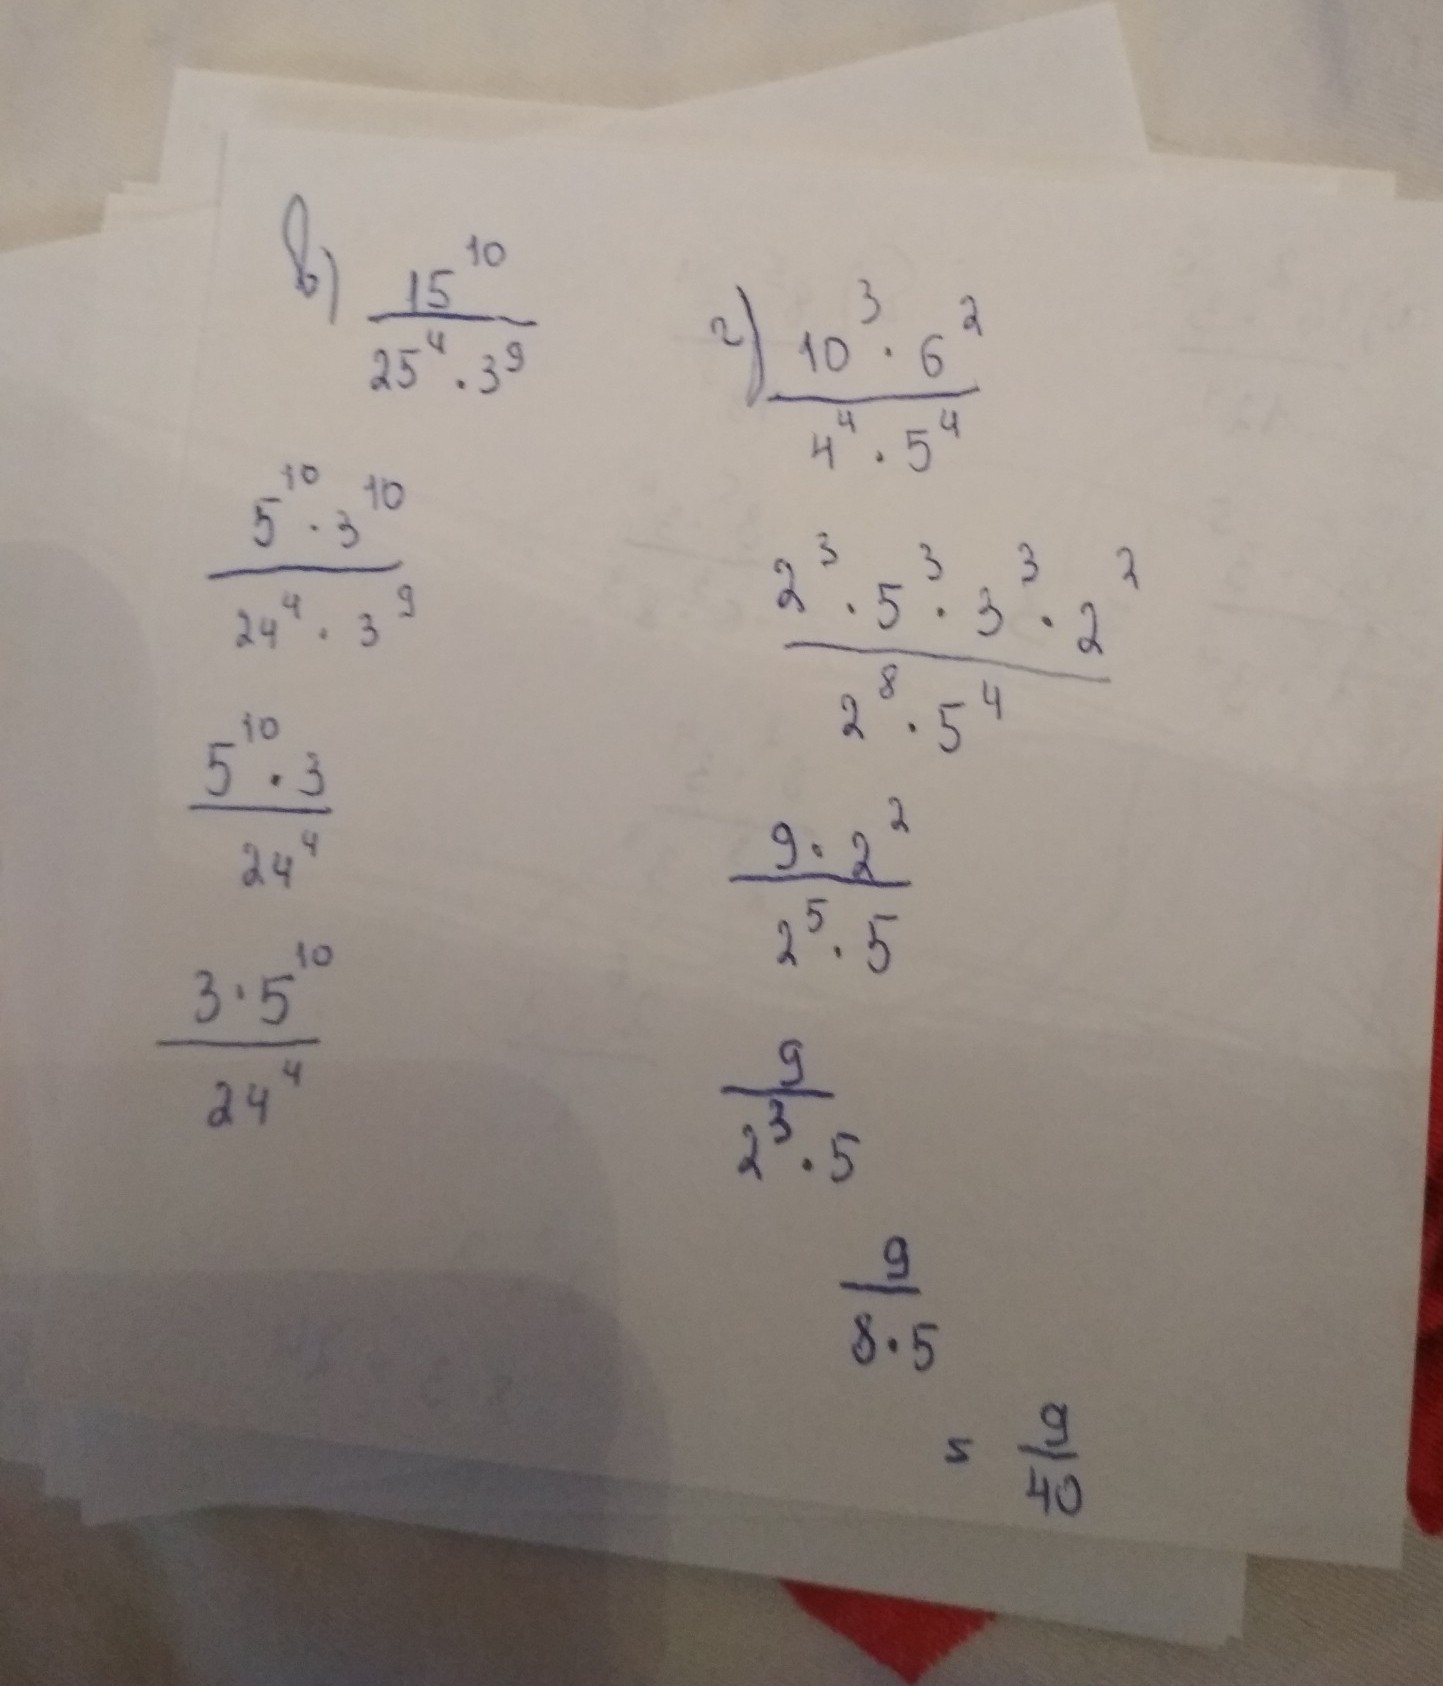 в) 15^10 / 25^4 · 3^9
5^10 · 3^10 / 24^4 · 3^9
5^10 · 3 / 24^4
3 · 5^10 / 24^4
г) 10^3 · 6^2 / 4^4 · 5^4
2^3 · 5^3 · 3^3 · 2^2 / 2^8 · 5^4
9 · 2^2 / 2^5 · 5
9 / 2^3 · 5
9 / 8 · 5
= 9 / 40